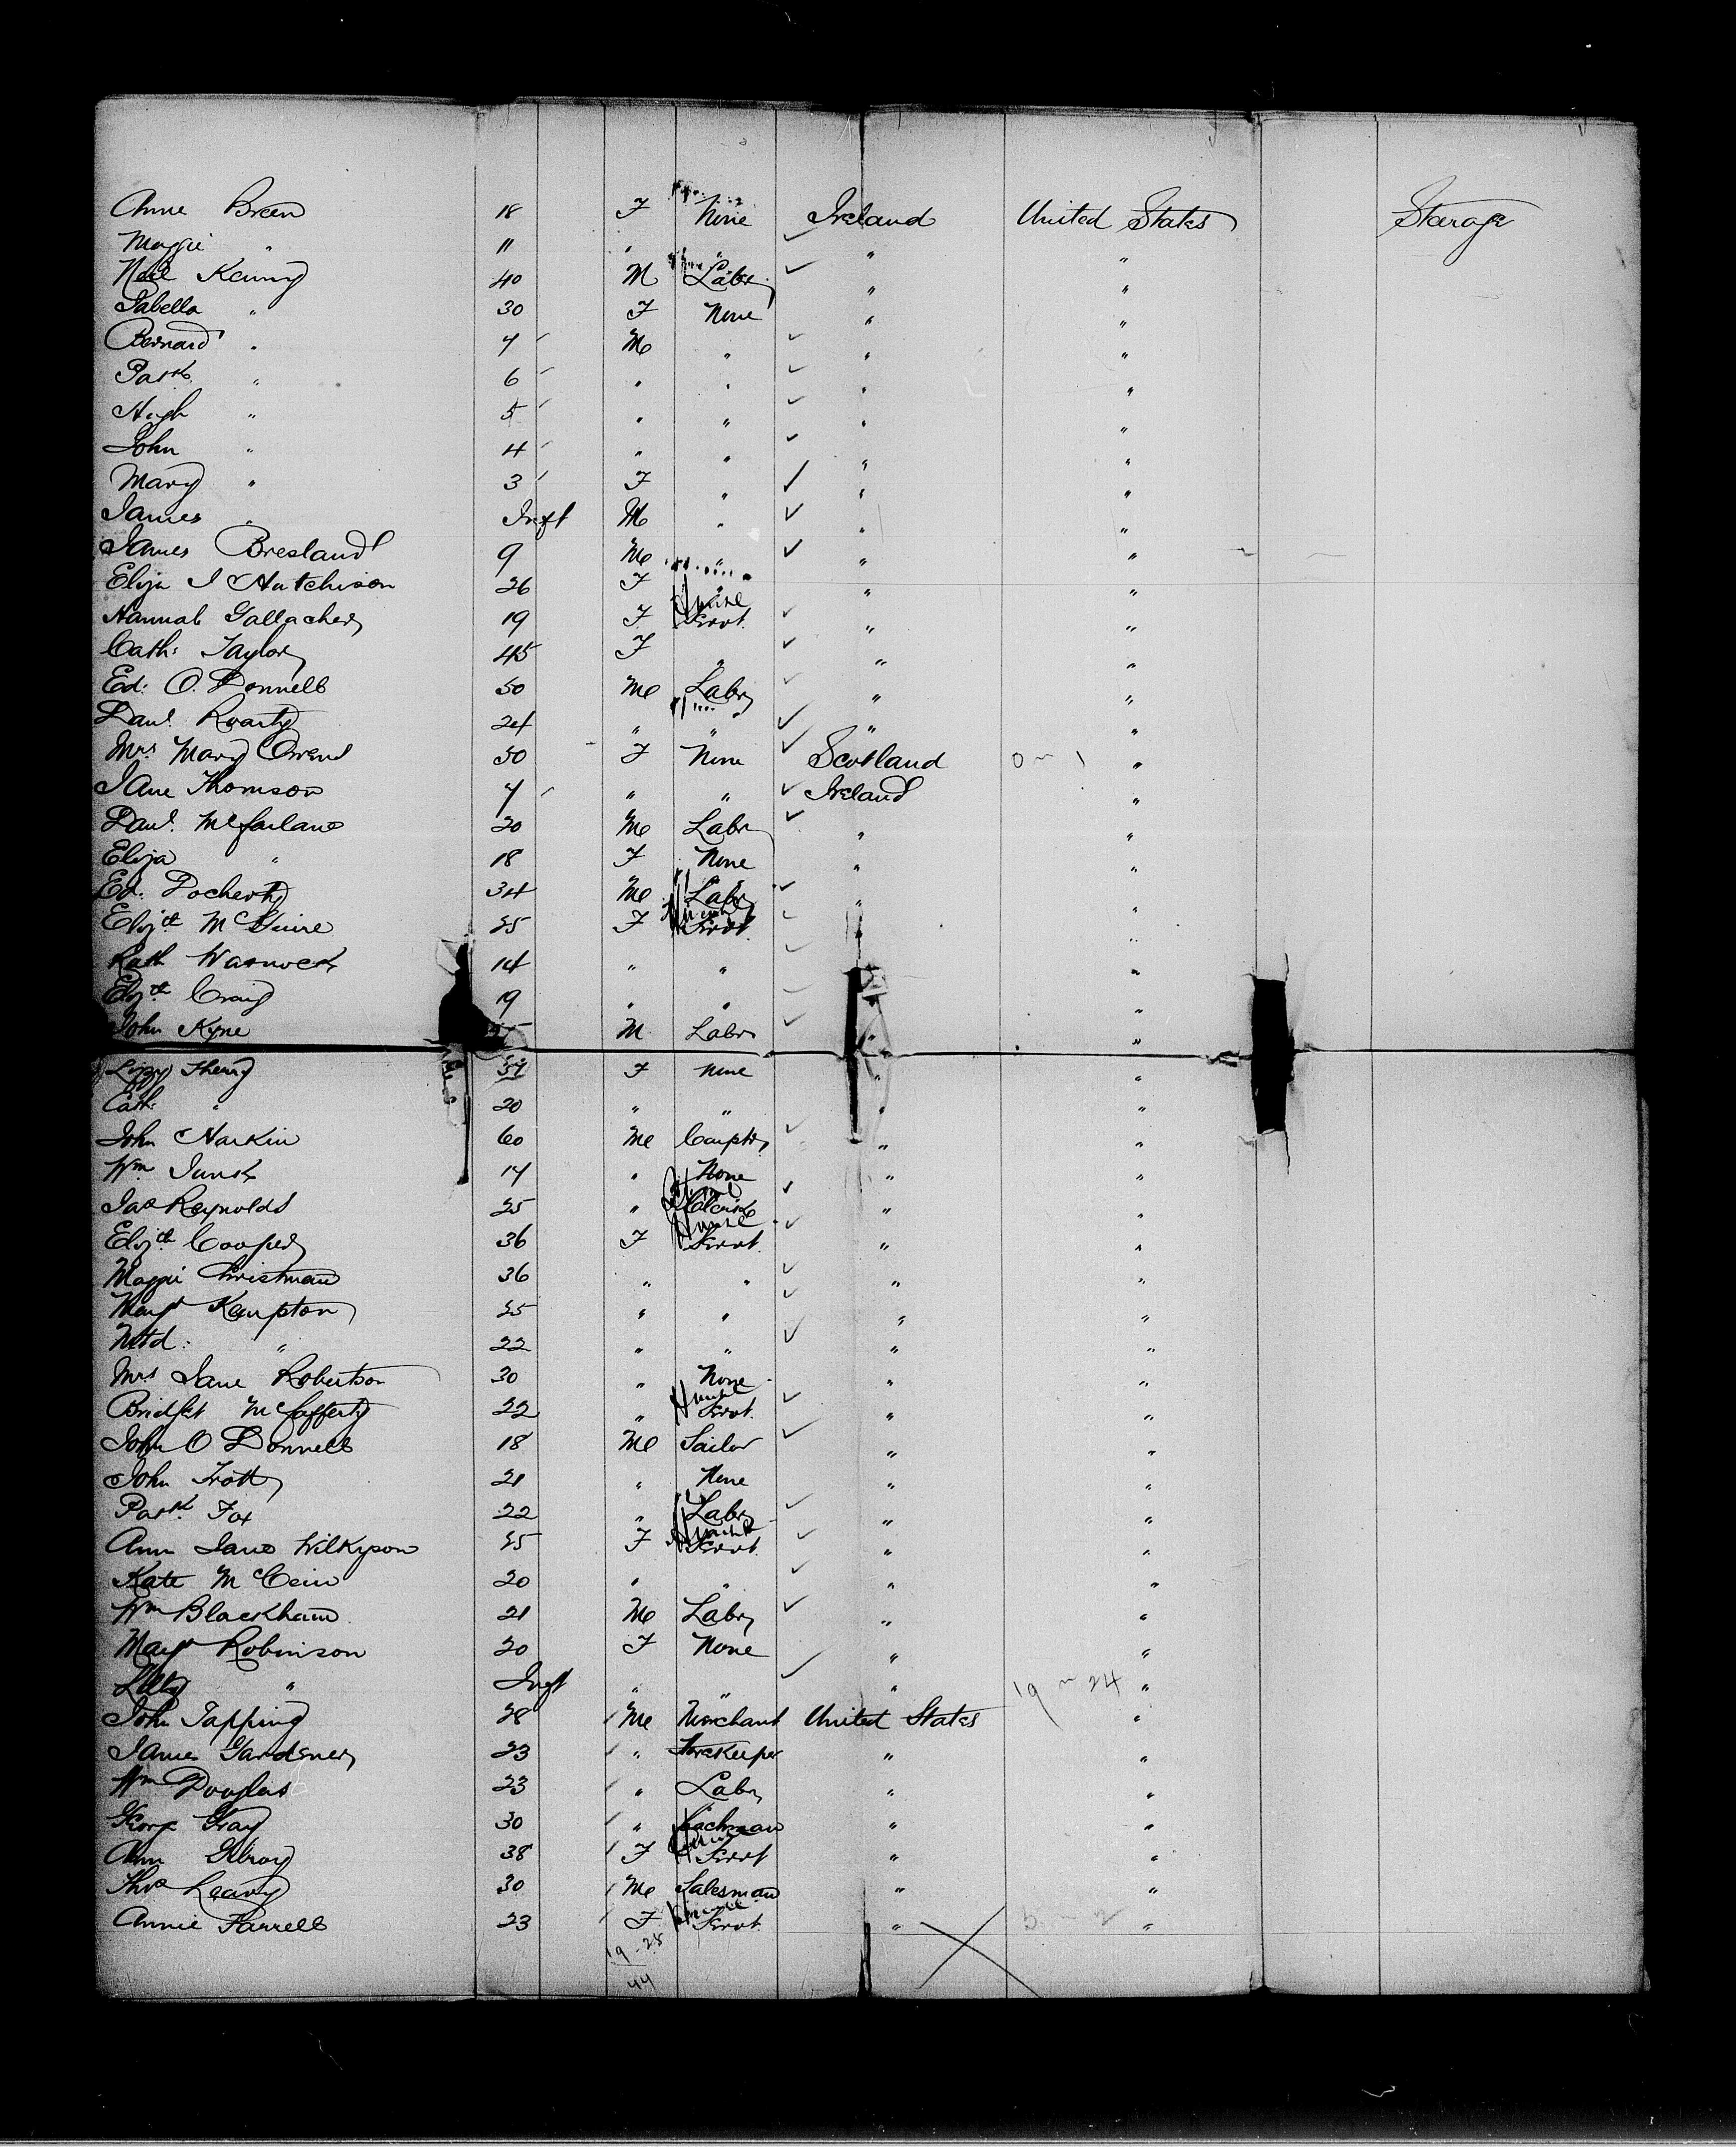 Anne Breen 18 F None Ireland United States Steerage
Maggie " 11 " " " "
Neil Kenny 40 M Labr " "
Isabella " 30 F None " "
Bernard " 7 M " " "
Patk " 6 " " " "
Hugh " 5 " " " "
John " 4 " " " "
Mary " 3 F " " "
James " Inft M " " "
James Bresland 9 M " " "
Eliza J Hutchison 26 F " " "
Hannah Gallacher 19 F Servt. " "
Cath: Taylor 45 F " " "
Ed: O. Donnell 50 M Labr " "
Danl. Roarty 24 " " " "
Mrs Mary Owens 50 F None Scotland 0 - 1 "
Jane Thomson 7 " " Ireland "
Danl. McFarlane 20 M Labr " "
Eliza " 18 F None " "
Ed. Docherty 34 M Labr " "
Elizth McGuire 25 F Servt " "
Kath Warnock 14 " " " "
Elizth Craig 19 " " " "
John Kyne M Labr " "
Lizzy Sherry 57 F None " "
Cath: " 20 " " " "
John Harkin 60 M Carptr " "
Wm. Junk 14 " None " "
Jas Reynolds 25 " Clerk " "
Elizth Cooper 36 F Servt. " "
Maggie Christman 36 " " " "
Margt Kempton 25 " " " "
Mtd: " 22 " " " "
Mrs Jane Robertson 30 " None " "
Bridget McCafferty 22 " Servt. " "
John O Donnell 18 M Sailor " "
John Trott 21 " None " "
Patk. Fox 22 " Labr " "
Ann Jane Wilkyson 25 F Servt. " "
Kate McCein 20 " " " "
Wm Blackham 21 M Labr " "
Margt Robinson 20 F None " "
Inft " " " 19 - 24 "
John Tapping 28 M Merchant United States "
James Gardener 23 " Storekeeper " "
Wm Douglas 23 " Labr " "
George Gray 30 " Coachman " "
Ann Gilroy 38 F Servt " "
Thos Leavy 30 M Salesman " "
Annie Farrell 23 F Servt. " 5 - 2 "
19 - 25
44